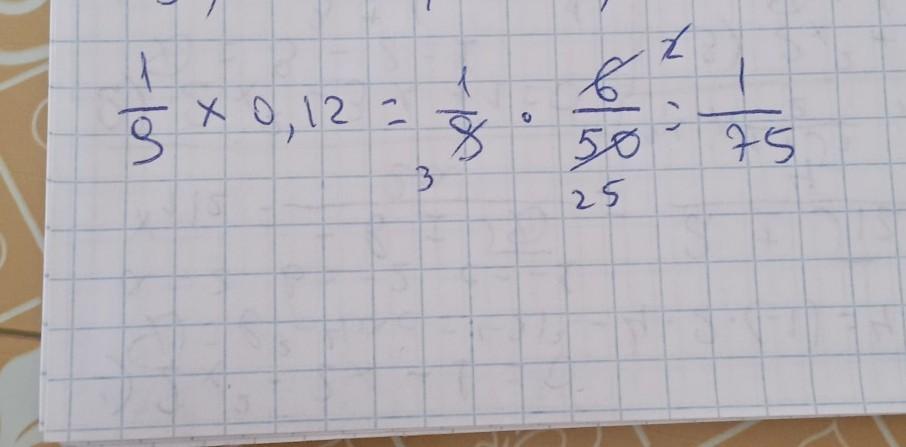 1/9 × 0,12 = 1/9 · 6/50 = 1/75
2
3
25